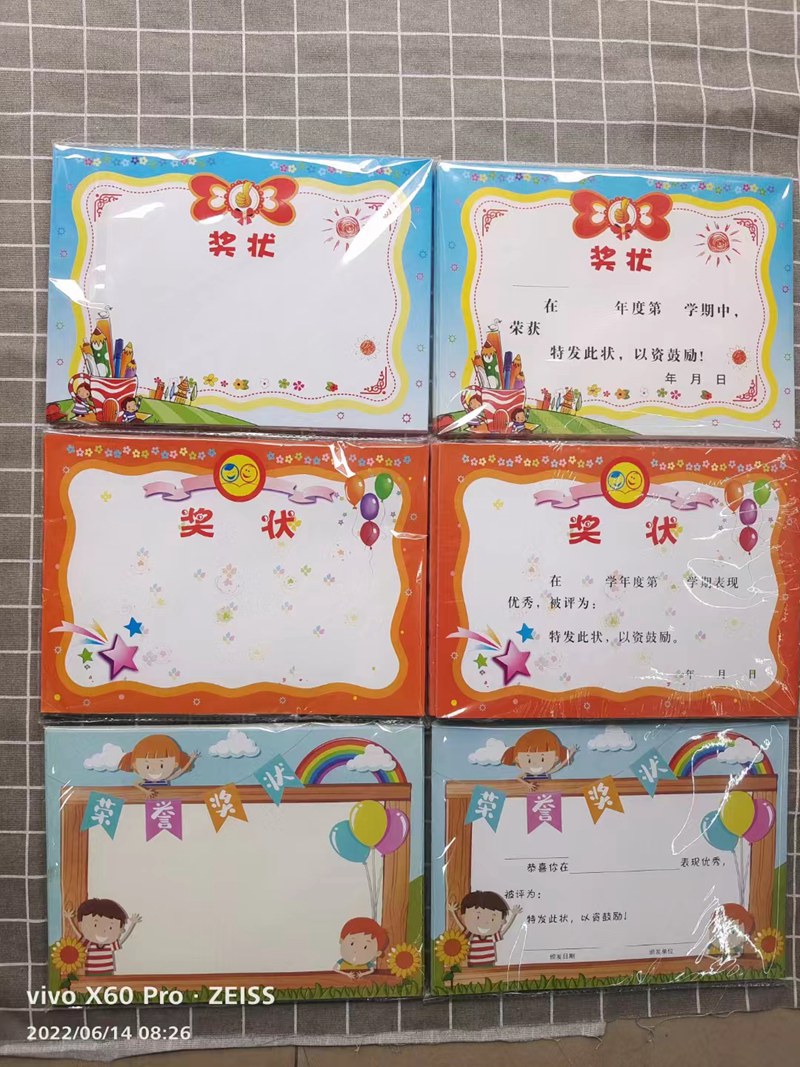 奖状
奖状
在 年度第 学期中，
荣获
特发此状，以资鼓励！
年 月 日
奖 状
奖 状
在 学年度第 学期表现
优秀，被评为：
特发此状，以资鼓励。
年 月 日
荣誉奖状
荣誉奖状
恭喜你在 表现优秀，
被评为：
特发此状，以资鼓励！
颁发日期 颁发单位
vivo X60 Pro · ZEISS
2022/06/14 08:26